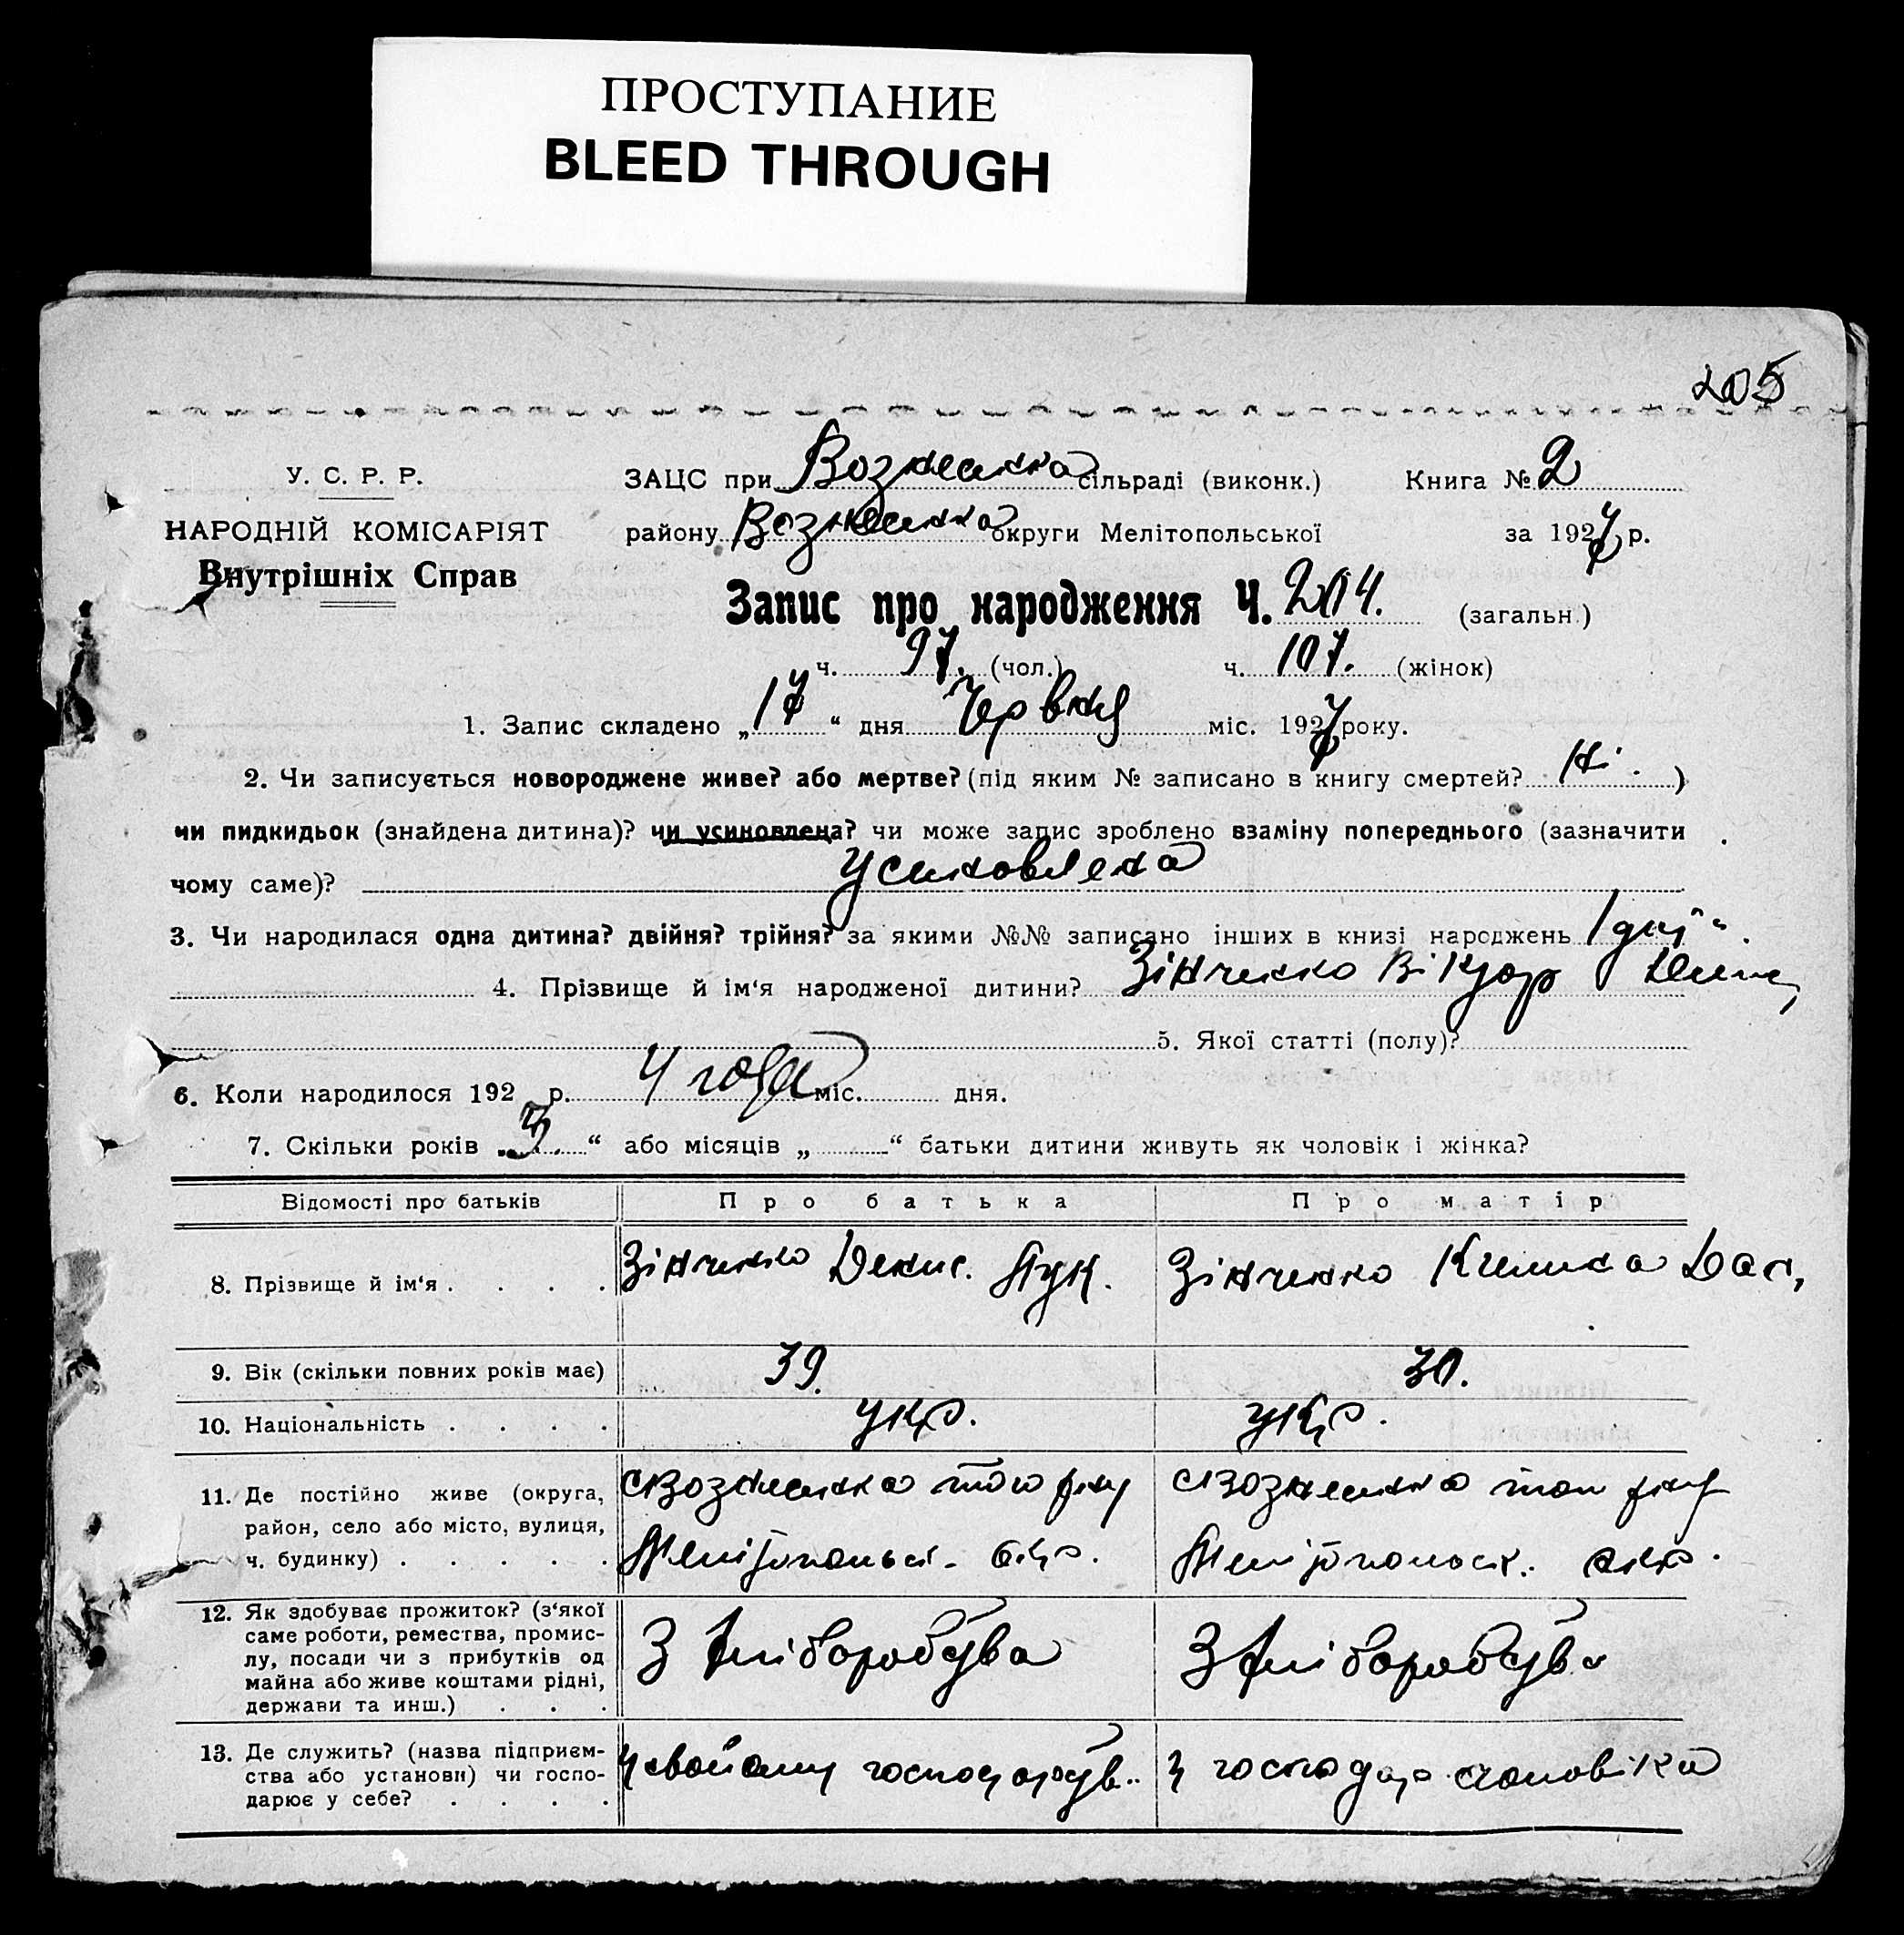 ПРОСТУПАНИЕ
BLEED THROUGH
205
У. С. Р. Р.
НАРОДНІЙ КОМІСАРІЯТ
Внутрішніх Справ
ЗАЦС при Вознесенка сільраді (виконк.) Книга № 2
району Вознесенка округи Мелітопольської за 1927 р.
Запис про народження Ч. 204. (загальн.)
ч. 97. (чол.) ч. 107. (жінок)
1. Запис складено „17“ дня Червня міс. 1927 року.
2. Чи записується новороджене живе? або мертве? (під яким № записано в книгу смертей? Ні.)
чи пидкидьок (знайдена дитина)? чи усиновлена? чи може запис зроблено взаміну попереднього (зазначити
чому саме)? Усиновлена
3. Чи народилася одна дитина? двійня? трійня? за якими №№ записано інших в книзі народжень 1
4. Прізвище й ім‘я народженої дитини? Зінченко Віктор
5. Якої статті (полу)?
6. Коли народилося 192 р. 4 года міс. дня.
7. Скільки років „3.“ або місяців „ “ батьки дитини живуть як чоловік і жінка?
Відомості про батьків Про батька Про матір
8. Прізвище й ім‘я . . . . Зінченко Денис. Лук. Зінченко Килина
9. Вік (скільки повних років має) 39. 30.
10. Національність . . . . укр. укр.
11. Де постійно живе (округа, с Вознесенка того р-ну с Вознесенка того р-ну
район, село або місто, вулиця,
ч. будинку) . . . . . Мелітопольськ. окр. Мелітопольськ. окр.
12. Як здобуває прожиток? (з‘якої
саме роботи, ремества, промис-
лу, посади чи з прибутків од З хліборобства З хліборобства
майна або живе коштами рідні,
держави та инш.) . . .
13. Де служить? (назва підприєм- У свойому господарстві. У господар. чоловіка
ства або установи) чи госпо-
дарює у себе? . . . .